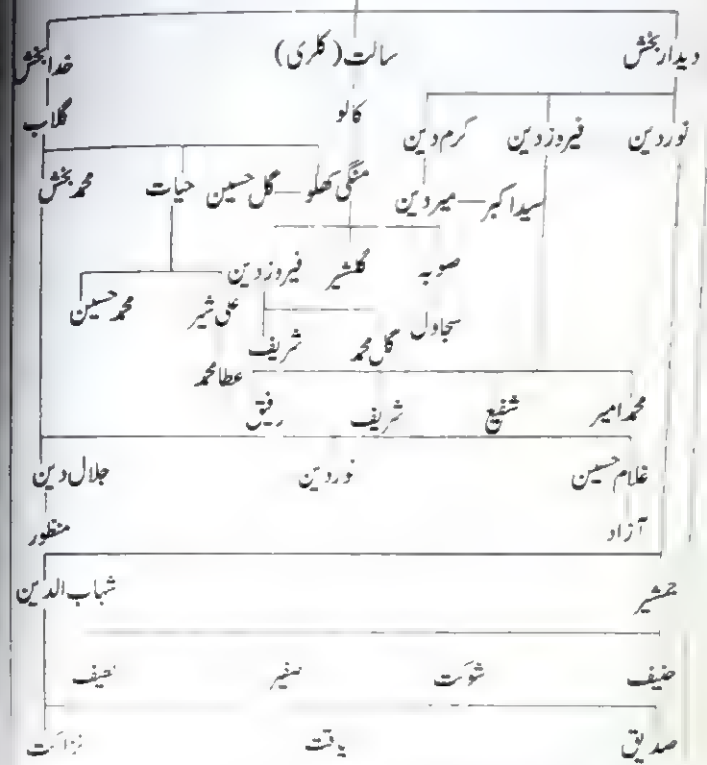 دیدار بخش سالت (کلری) خدا بخش
نوردین فیروزدین کرم دین کالو گلاب
سید اکبر میردین منگی کھلو گل حسین حیات محمد بخش
صوبہ گلشیر فیروزدین
سجاول علی شیر محمد حسین
گل محمد شریف
عطا محمد
محمد امیر شفیع شریف رفیق
غلام حسین نوردین جلال دین
آزاد منظور
جمشیر شہاب الدین
حنیف شوکت صغیر نصیف
صدیق یاقت نزاکت